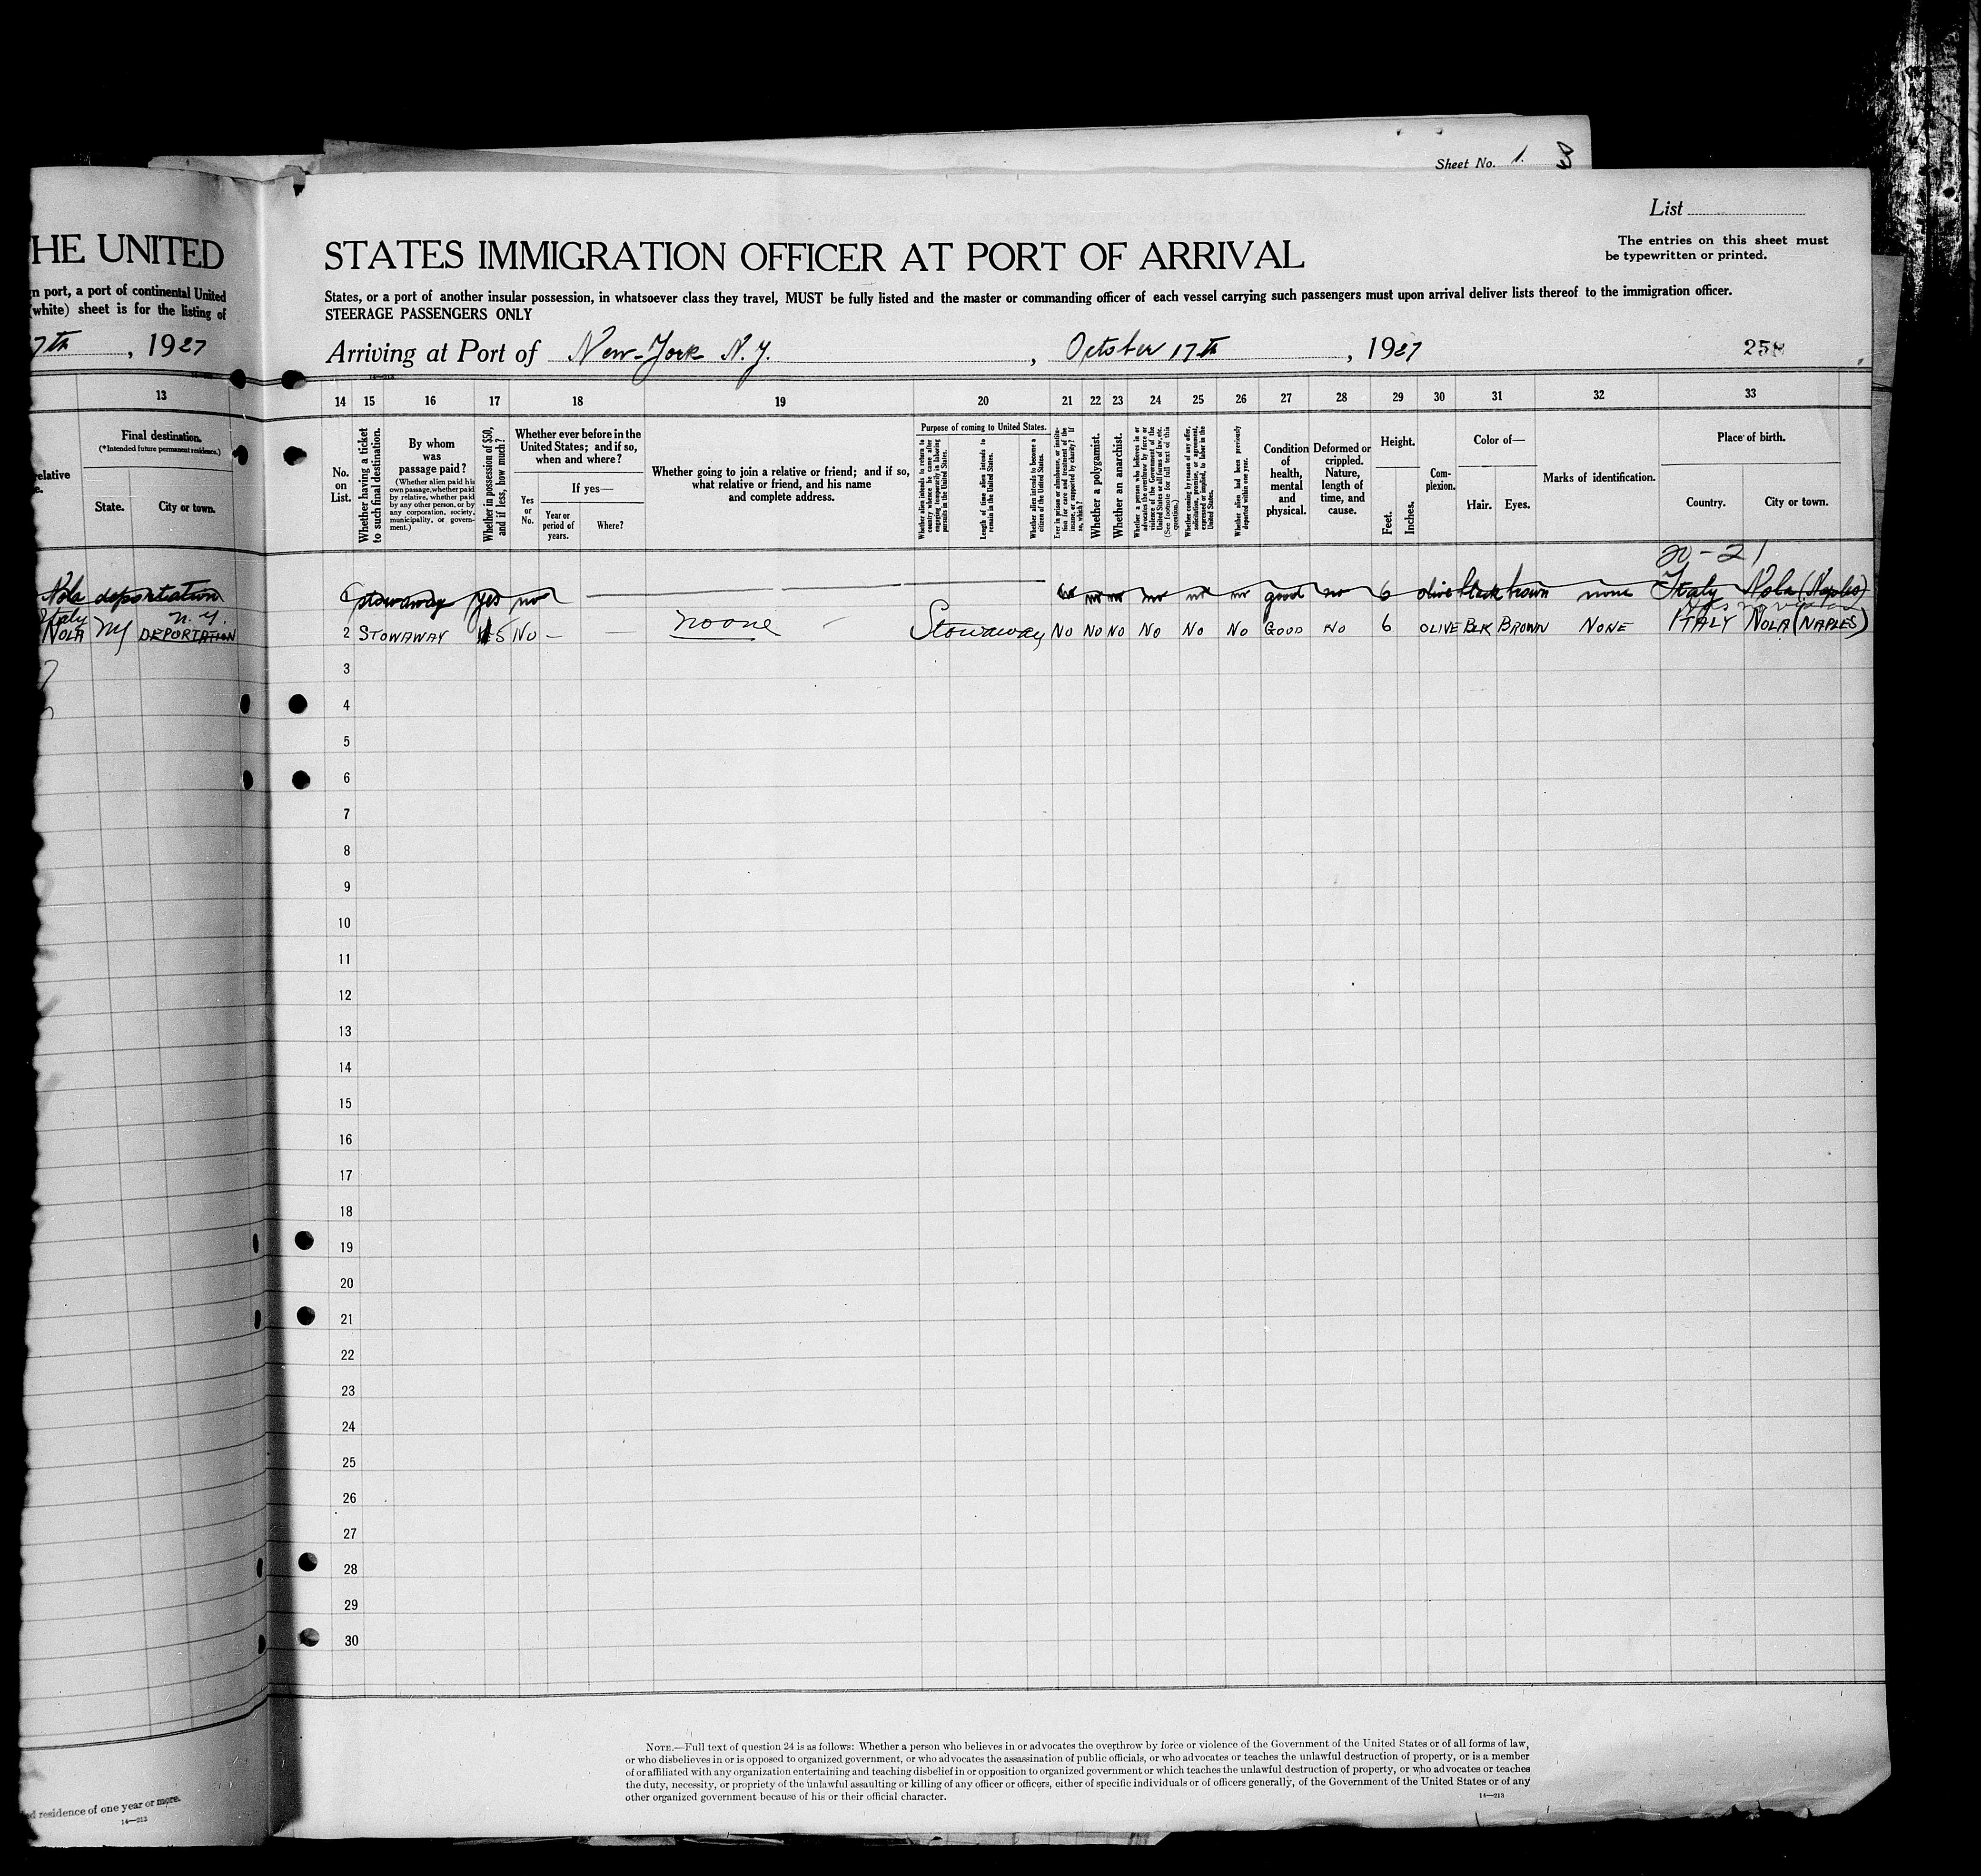 Sheet No. 1
List
The entries on this sheet must
be typewritten or printed.
HE UNITED
STATES IMMIGRATION OFFICER AT PORT OF ARRIVAL
n port, a port of continental United
(white) sheet is for the listing of
States, or a port of another insular possession, in whatsoever class they travel, MUST be fully listed and the master or commanding officer of each vessel carrying such passengers must upon arrival deliver lists thereof to the immigration officer.
STEERAGE PASSENGERS ONLY
7th, 1927
Arriving at Port of New-York N.Y., October 17th, 1927
258
13
14 15 16 17 18 19 20 21 22 23 24 25 26 27 28 29 30 31 32 33
relative
e.
Final destination.
(*Intended future permanent residence.)
State.
City or town.
No.
on
List.
Whether having a ticket
to such final destination.
By whom
was
passage paid?
(Whether alien paid his
own passage, whether paid
by relative, whether paid
by any other person, or by
any corporation, society,
municipality, or govern-
ment.)
Whether in possession of $50,
and if less, how much?
Whether ever before in the
United States; and if so,
when and where?
Yes
or
No.
If yes—
Year or
period of
years.
Where?
Whether going to join a relative or friend; and if so,
what relative or friend, and his name
and complete address.
Purpose of coming to United States.
Whether alien intends to return to
country whence he came after
engaging temporarily in laboring
pursuits in the United States.
Length of time alien intends to
remain in the United States.
Whether alien intends to become a
citizen of the United States.
Ever in prison or almshouse, or institu-
tion for care and treatment of the
insane, or supported by charity? If
so, which?
Whether a polygamist.
Whether an anarchist.
Whether a person who believes in or
advocates the overthrow by force or
violence of the Government of the
United States or all forms of law, etc.
(See footnote for full text of this
question.)
Whether coming by reason of any offer,
solicitation, promise, or agreement,
expressed or implied, to labor in the
United States.
Whether alien had been previously
deported within one year.
Condition
of
health,
mental
and
physical.
Deformed or
crippled.
Nature,
length of
time, and
cause.
Height.
Feet.
Inches.
Com-
plexion.
Color of—
Hair.
Eyes.
Marks of identification.
Place of birth.
Country.
City or town.
20-21
Nola deportation
stowaway yes no no no no no no good no 6 olive black brown none Italy Nola (Naples)
Italy N.Y.
NOLA NY DEPORTATION
2 STOWAWAY 5 NO - - no one - Stowaway NO NO NO NO NO NO GOOD NO 6 OLIVE BLK BROWN NONE ITALY NOLA (NAPLES)
3
4
5
6
7
8
9
10
11
12
13
14
15
16
17
18
19
20
21
22
23
24
25
26
27
28
29
30
NOTE.—Full text of question 24 is as follows: Whether a person who believes in or advocates the overthrow by force or violence of the Government of the United States or of all forms of law,
or who disbelieves in or is opposed to organized government, or who advocates the assassination of public officials, or who advocates or teaches the unlawful destruction of property, or is a member
of or affiliated with any organization entertaining and teaching disbelief in or opposition to organized government or which teaches the unlawful destruction of property, or who advocates or teaches
the duty, necessity, or propriety of the unlawful assaulting or killing of any officer or officers, either of specific individuals or of officers generally, of the Government of the United States or of any
other organized government because of his or their official character.
14—213
ed residence of one year or more.
14—213